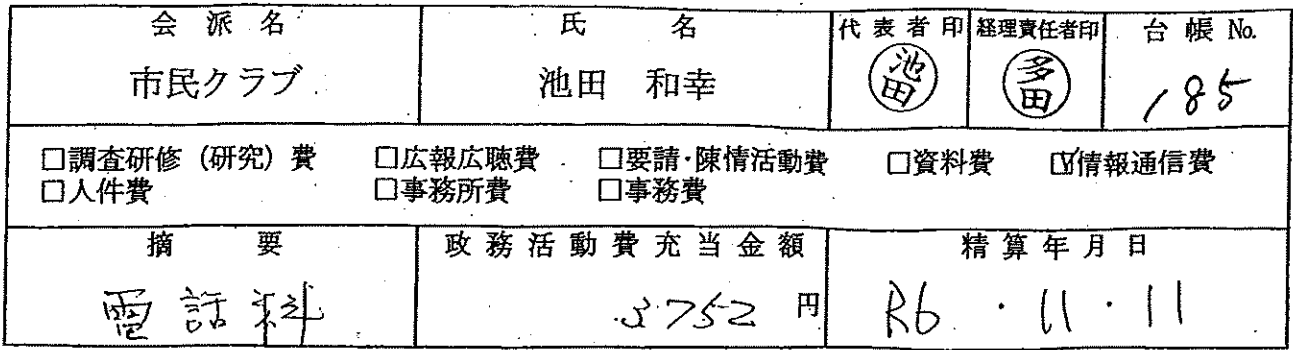 会派名 氏名 代表者印 経理責任者印 台帳 No.
市民クラブ 池田 和幸 池田 多田 185
□調査研修（研究）費 □広報広聴費 □要請・陳情活動費 □資料費 ☑情報通信費
□人件費 □事務所費 □事務費
摘要 政務活動費充当金額 精算年月日
電話料 3752 円 R6・11・11